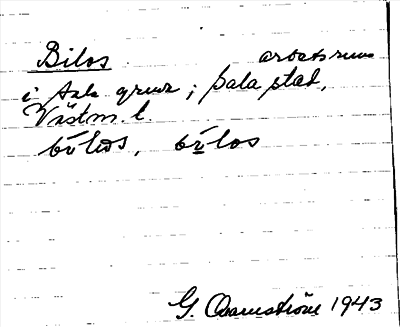 Bilos arbetsrum
i Sala gruva; Sala stad,
Västm. l
bílos, bìlos
G. Oxenström 1943